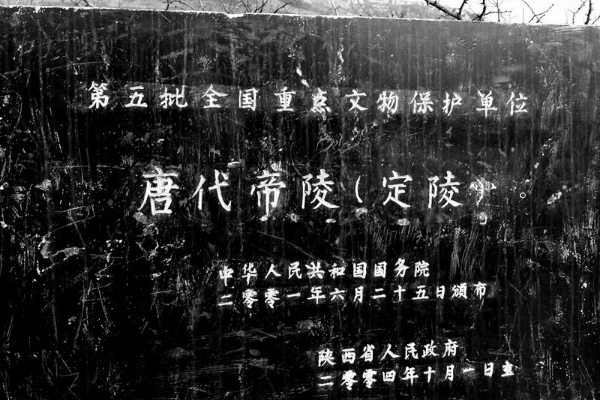 第五批全国重点文物保护单位
唐代帝陵(定陵)
中华人民共和国国务院
二零零一年六月二十五日頒布
陕西省人民政府
二零零四年十月一日立